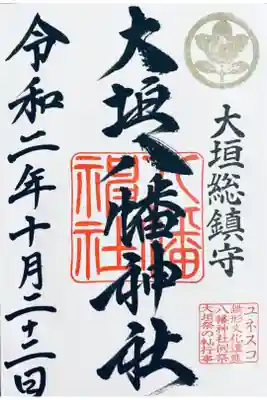 大垣総鎮守
大垣八幡神社
八幡
神社
令和二年十月二十二日
ユネスコ
無形文化遺産
八幡神社例祭
大垣祭の軕行事